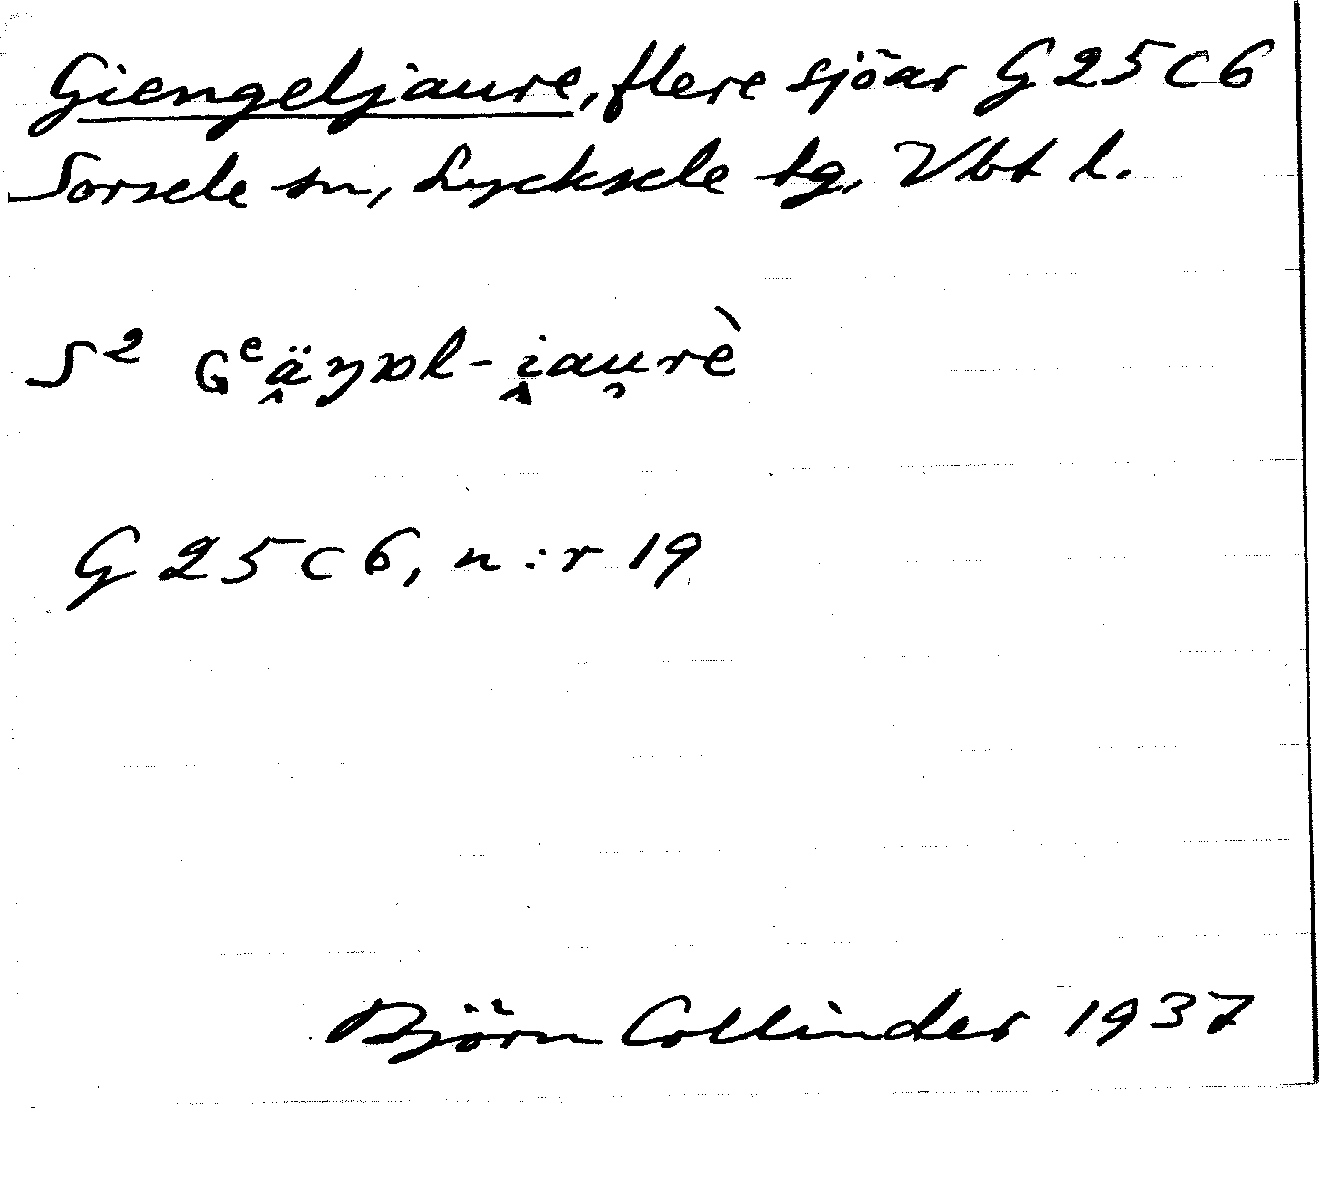 Giengeljaure, flere sjöar G 25 C 6
Sorsele sn, Lycksele tg, Vbt l.
S² Gᵉä̭ŋɒl-i̭au̯rè
G 25 C 6, n:r 19
Björn Collinder 1937